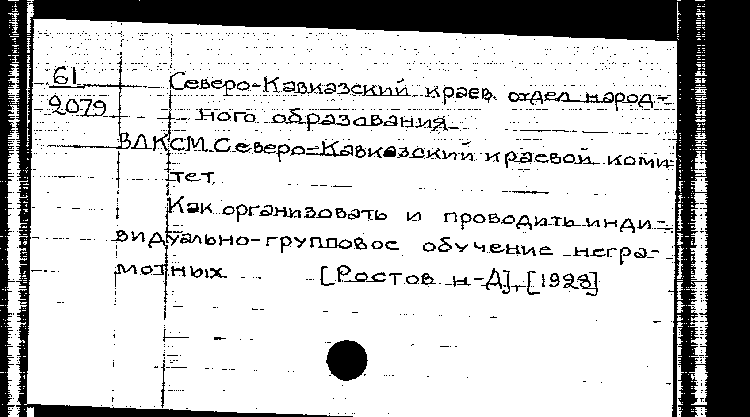 61
2079
Северо-Кавказский краев. отдел народ-
ного образования
ВЛКСМ. Северо-Кавказский краевой коми
тет
Как организовать и проводить инди-
видуально-групповое обучение негра-
мотных [Ростов н-Д], [1928]